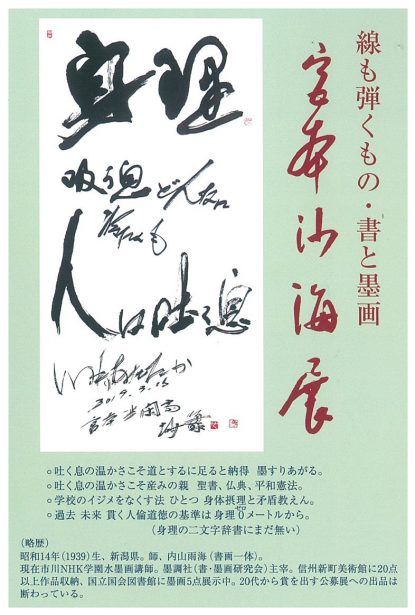 線も弾くもの・書と墨画
宮本沙海展
身理
吸う息どんなに
冷たくも
人は吐く息
2019.3.15
○吐く息の温かさこそ道とするに足ると納得 墨すりあがる。
○吐く息の温かさこそ産みの親 聖書、仏典、平和憲法。
○学校のイジメをなくす法 ひとつ 身体摂理と矛盾教えん。
○過去 未来 貫く人倫道徳の基準は身理0メートルから。
(身理の二文字辞書にまだ無い)
(略歴)
昭和14年(1939)生、新潟県。師、内山雨海(書画一体)。
現在市川NHK学園水墨画講師。墨調社(書・墨画研究会)主宰。信州新町美術館に20点
以上作品収納、国立国会図書館に墨画5点展示中。20代から賞を出す公募展への出品は
断わっている。